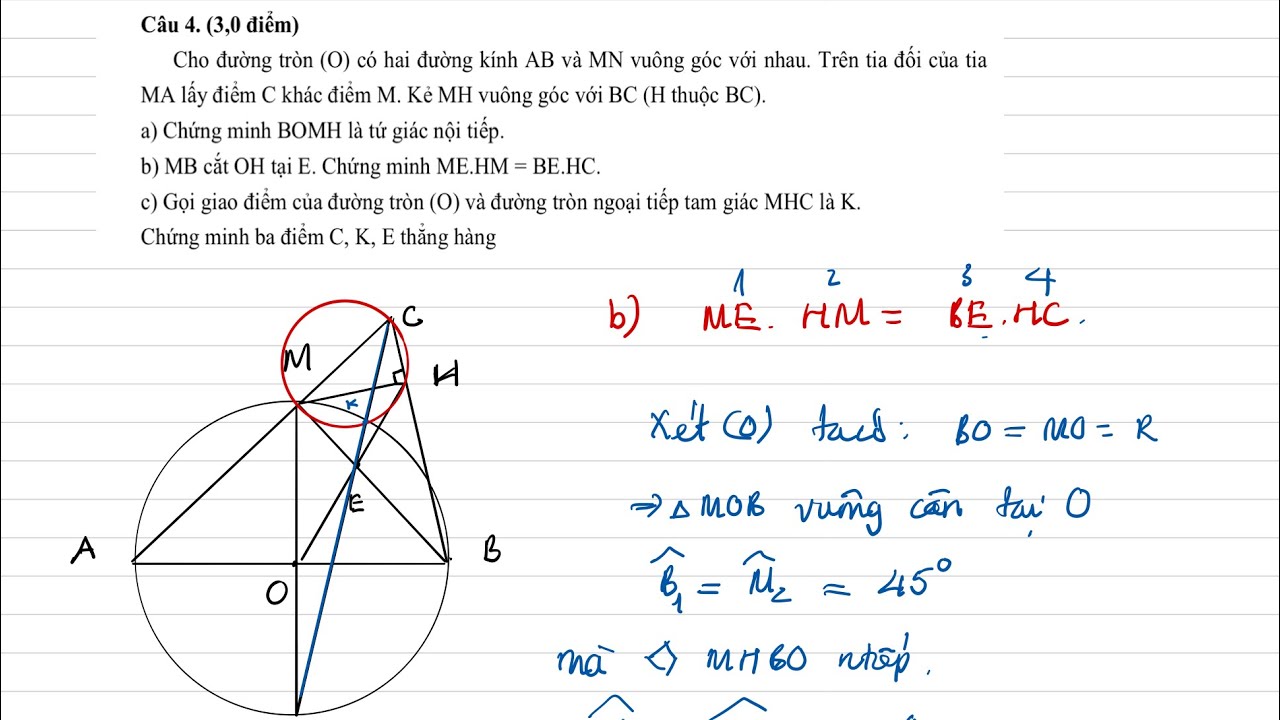 Câu 4. (3,0 điểm)
Cho đường tròn (O) có hai đường kính AB và MN vuông góc với nhau. Trên tia đối của tia
MA lấy điểm C khác điểm M. Kẻ MH vuông góc với BC (H thuộc BC).
a) Chứng minh BOMH là tứ giác nội tiếp.
b) MB cắt OH tại E. Chứng minh ME.HM = BE.HC.
c) Gọi giao điểm của đường tròn (O) và đường tròn ngoại tiếp tam giác MHC là K.
Chứng minh ba điểm C, K, E thẳng hàng
1 2 3 4
b) ME. HM = BE.HC.
C
M
H
K
Xét (O) ta có: BO = MO = R
E
⇒ △ MOB vuông cân tại O
A
B
O
B̂₁ = M̂₂ = 45°
mà ◇ MHBO ntiếp.